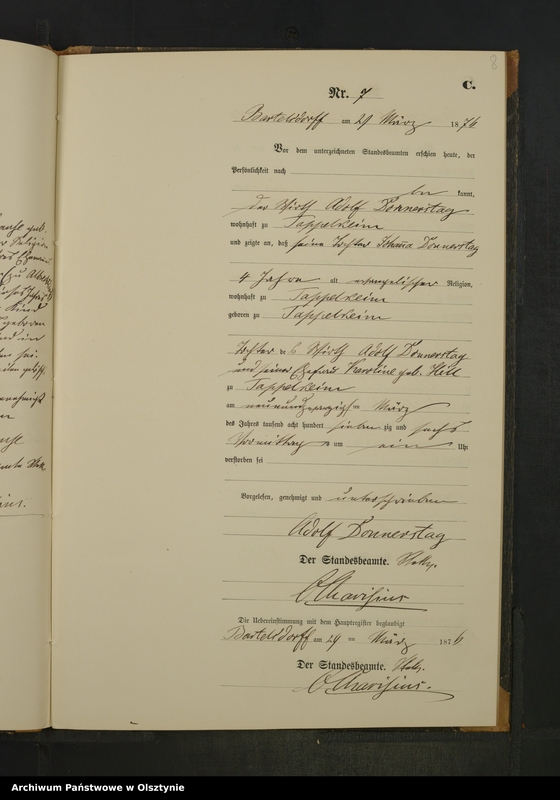 8
C.
Nr. 7
Bartelsdorff am 29 März 1876
Vor dem unterzeichneten Standesbeamten erschien heute, der
Persönlichkeit nach
be kannt,
der Wirth Adolf Donnerstag
wohnhaft zu Tappelkeim
und zeigte an, daß seine Tochter Johanna Donnerstag
4 Jahre alt evangelischer Religion,
wohnhaft zu Tappelkeim
geboren zu Tappelkeim
Tochter des Wirth Adolf Donnerstag
und seiner Ehefrau Karoline geb. Hill
zu Tappelkeim
am neunundzwanzigsten März
des Jahres tausend acht hundert sieben zig und sechs
Vormittags um ein Uhr
verstorben sei
Vorgelesen, genehmigt und unterschrieben
Adolf Donnerstag
Der Standesbeamte.
Die Uebereinstimmung mit dem Hauptregister beglaubigt
Bartelsdorff am 29 ten März 1876
Der Standesbeamte.
Archiwum Państwowe w Olsztynie